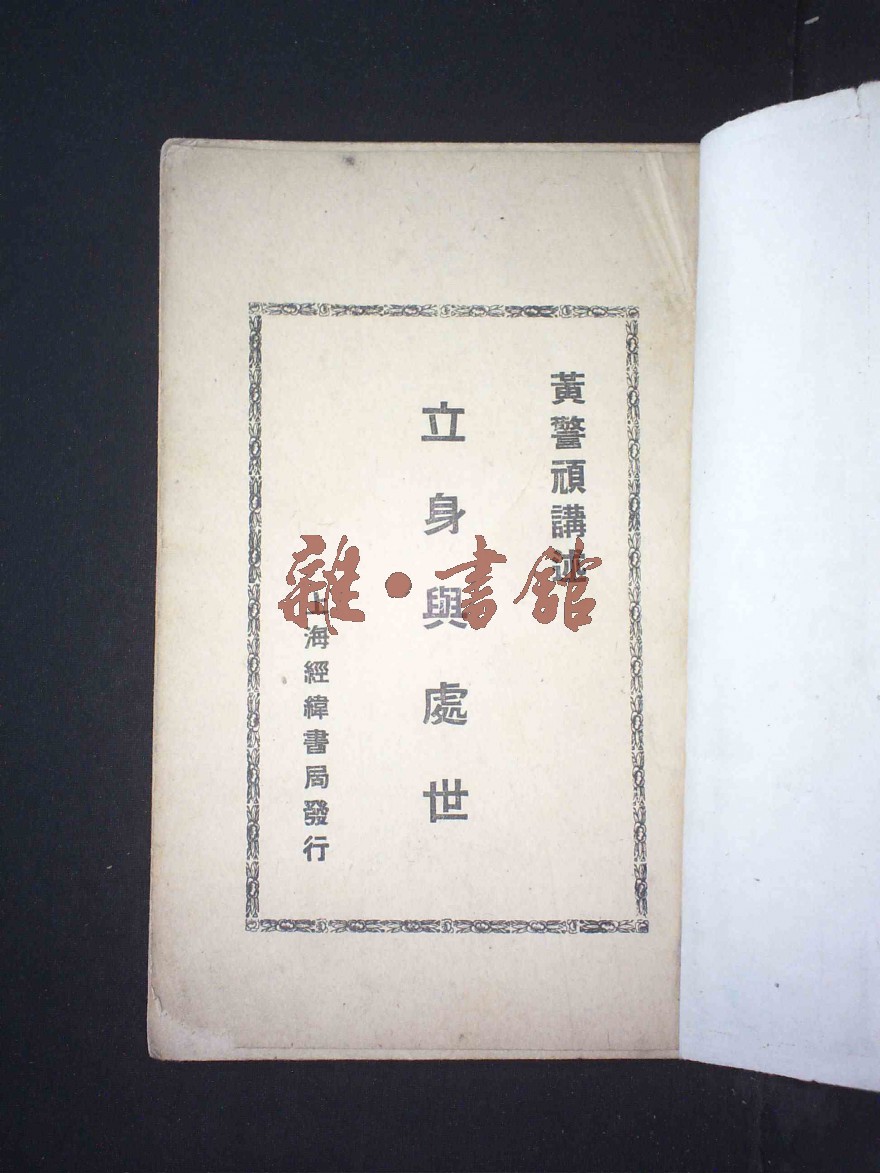 黃警頑講述
立身與處世
上海經緯書局發行
雜·書館